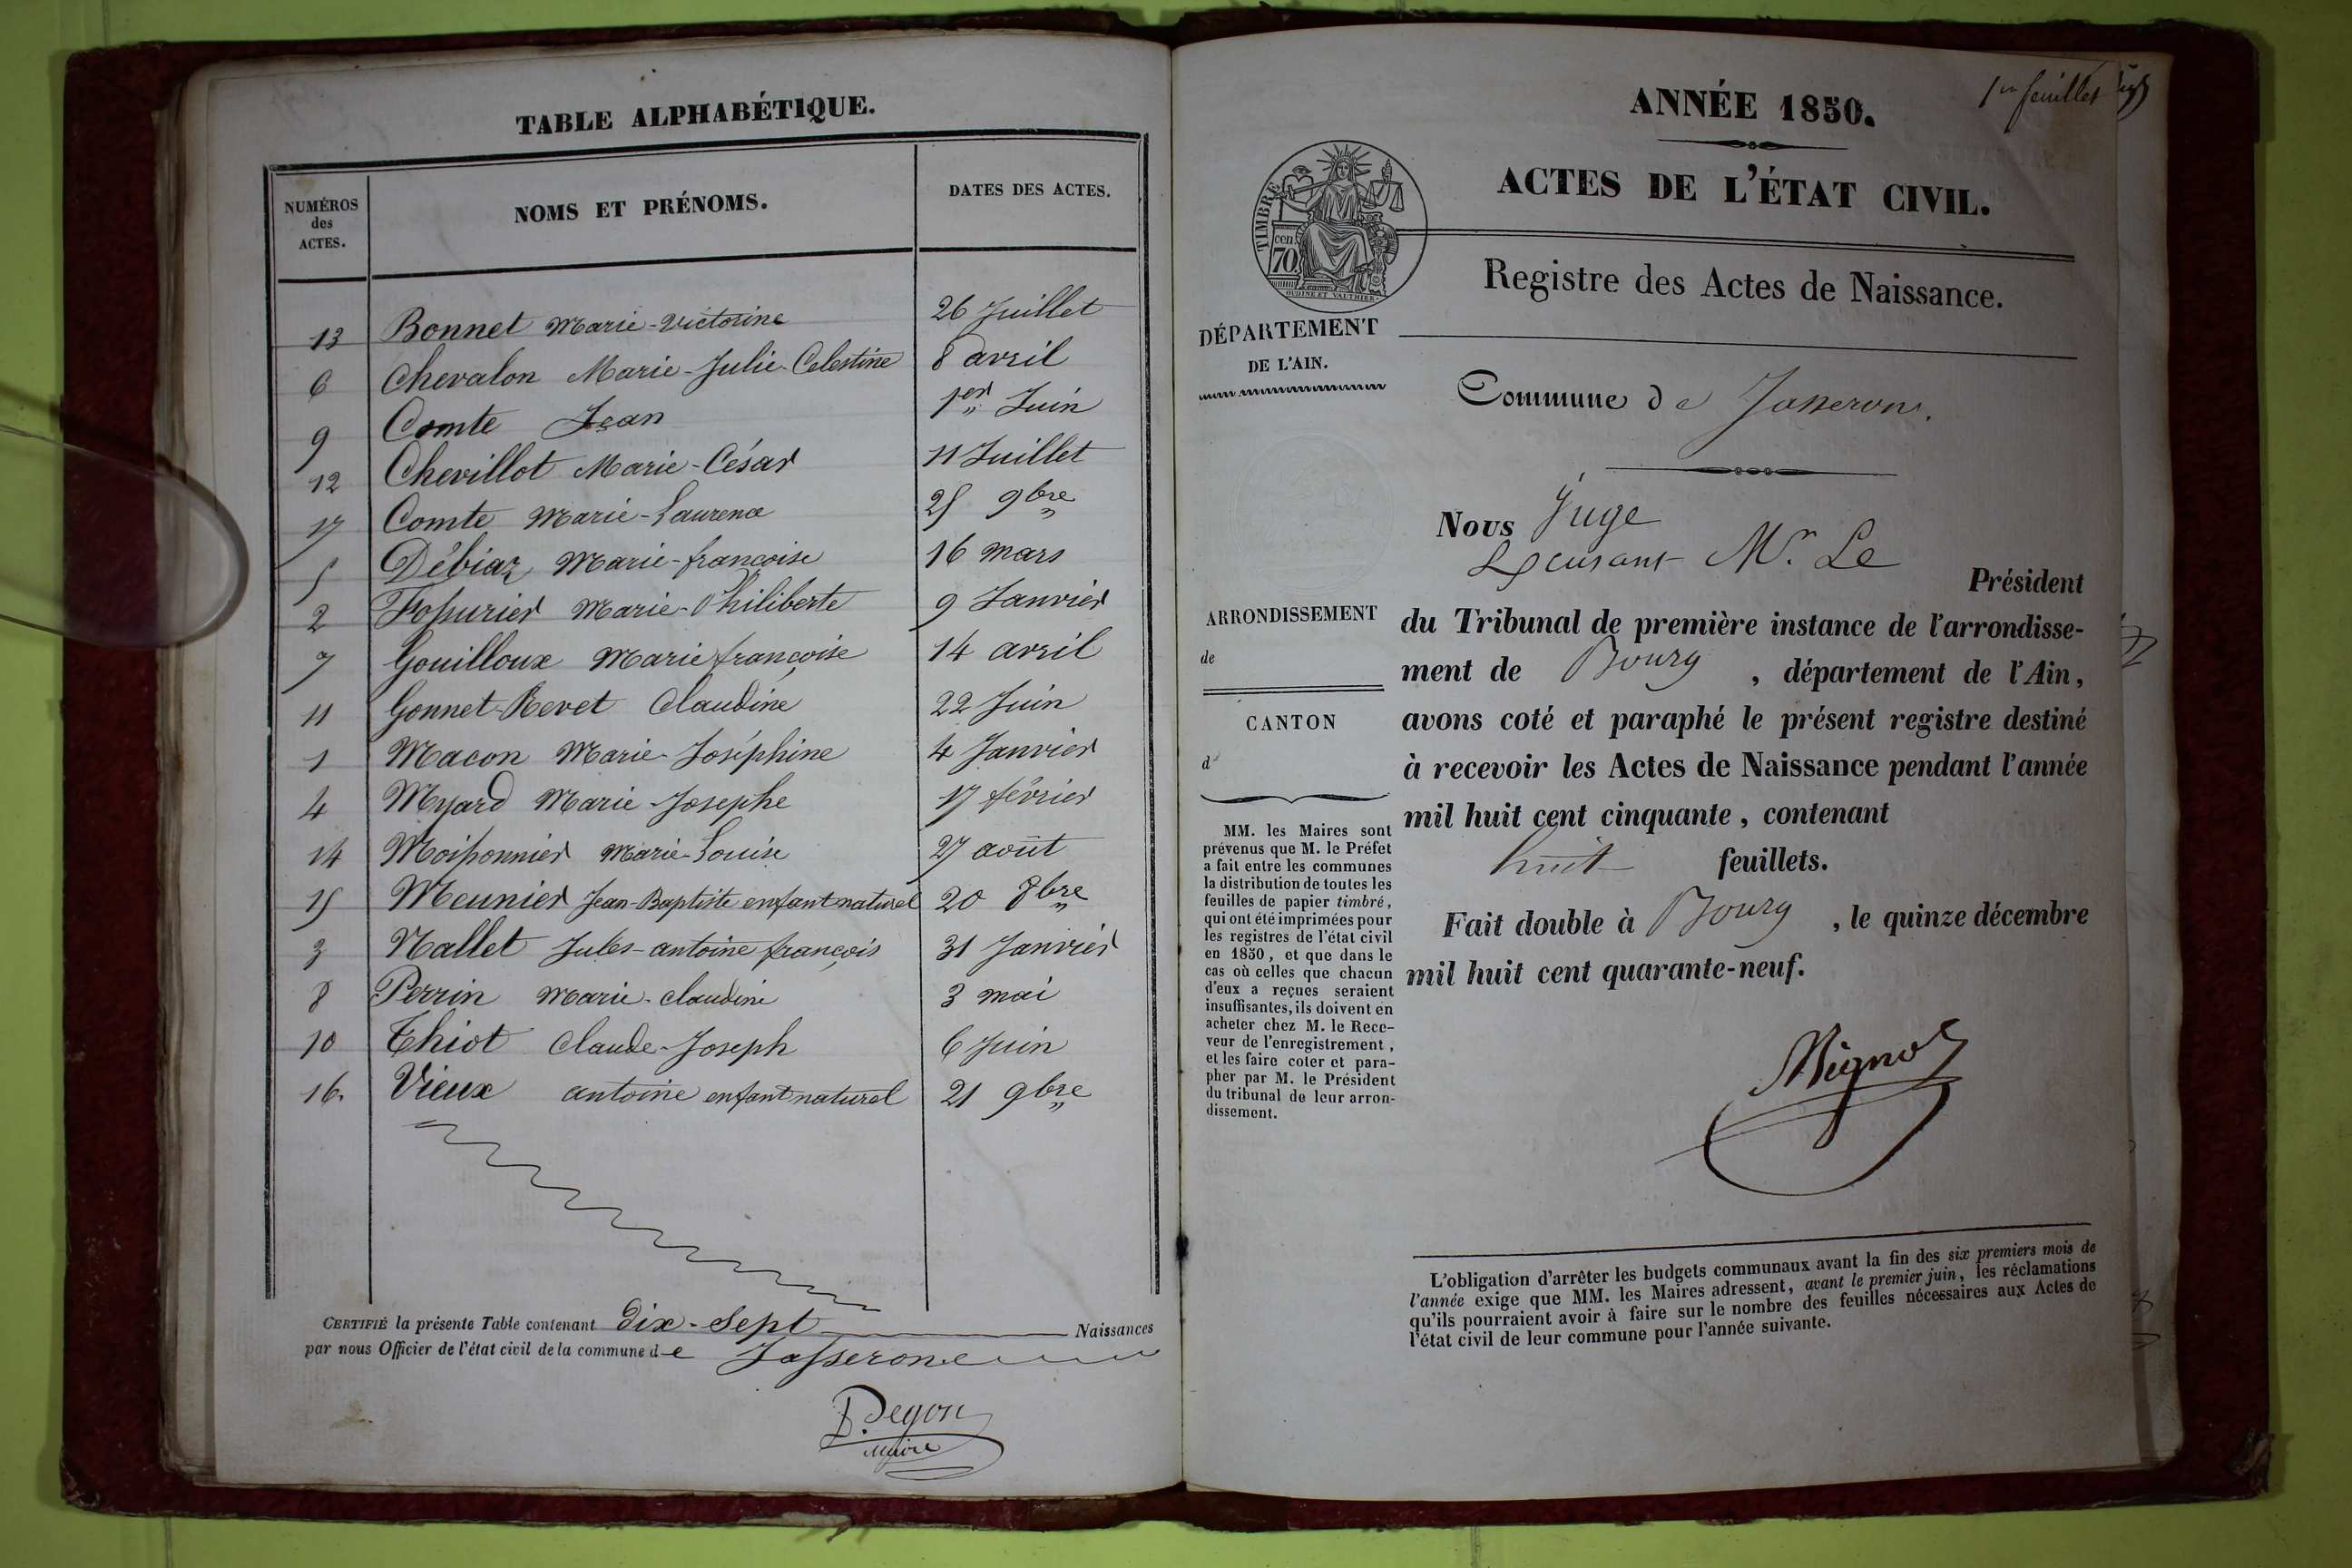 TABLE ALPHABÉTIQUE.
NUMÉROS
des
ACTES.
NOMS ET PRÉNOMS.
DATES DES ACTES.
13 Bonnet Marie-Victorine 26 Juillet
6 Chevalon Marie-Julie-Celestine 8 avril
9 Comte Jean 1er Juin
12 Chevillot Marie-César 11 Juillet
17 Comte Marie-Laurence 25 9bre
5 Débiaz Marie-françoise 16 mars
2 Fossurier Marie-Philiberte 9 Janvier
7 Gouilloux Marie françoise 14 avril
11 Gonnet-Revet Claudine 22 Juin
1 Macon Marie-Joséphine 4 Janvier
4 Myard Marie-Josephe 17 février
14 Moissonnier Marie-Louise 27 août
15 Meunier Jean-Baptiste enfant naturel 20 8bre
3 Nallet Jules-antoine françois 31 Janvier
8 Perrin Marie-claudine 3 mai
10 Thiot Claude-Joseph 6 Juin
16. Vieux antoine enfant naturel 21 9bre
CERTIFIÉ la présente Table contenant Dix-Sept Naissances
par nous Officier de l'état civil de la commune de Jasseron
Degon
maire
1er feuillet
ANNÉE 1850.
ACTES DE L'ÉTAT CIVIL.
TIMBRE
cen.
70
OUDINE ET VAUTHIER
Registre des Actes de Naissance.
DÉPARTEMENT
DE L'AIN.
Commune de Jasseron.
ARRONDISSEMENT
de
CANTON
d
MM. les Maires sont
prévenus que M. le Préfet
a fait entre les communes
la distribution de toutes les
feuilles de papier timbré,
qui ont été imprimées pour
les registres de l'état civil
en 1850, et que dans le
cas où celles que chacun
d'eux a reçues seraient
insuffisantes, ils doivent en
acheter chez M. le Rece-
veur de l'enregistrement,
et les faire coter et para-
pher par M. le Président
du tribunal de leur arron-
dissement.
Nous Juge
M. Le
Président
du Tribunal de première instance de l'arrondisse-
ment de Bourg, département de l'Ain,
avons coté et paraphé le présent registre destiné
à recevoir les Actes de Naissance pendant l'année
mil huit cent cinquante, contenant
huit feuillets.
Fait double à Bourg, le quinze décembre
mil huit cent quarante-neuf.
L'obligation d'arrêter les budgets communaux avant la fin des six premiers mois de
l'année exige que MM. les Maires adressent, avant le premier juin, les réclamations
qu'ils pourraient avoir à faire sur le nombre des feuilles nécessaires aux Actes de
l'état civil de leur commune pour l'année suivante.